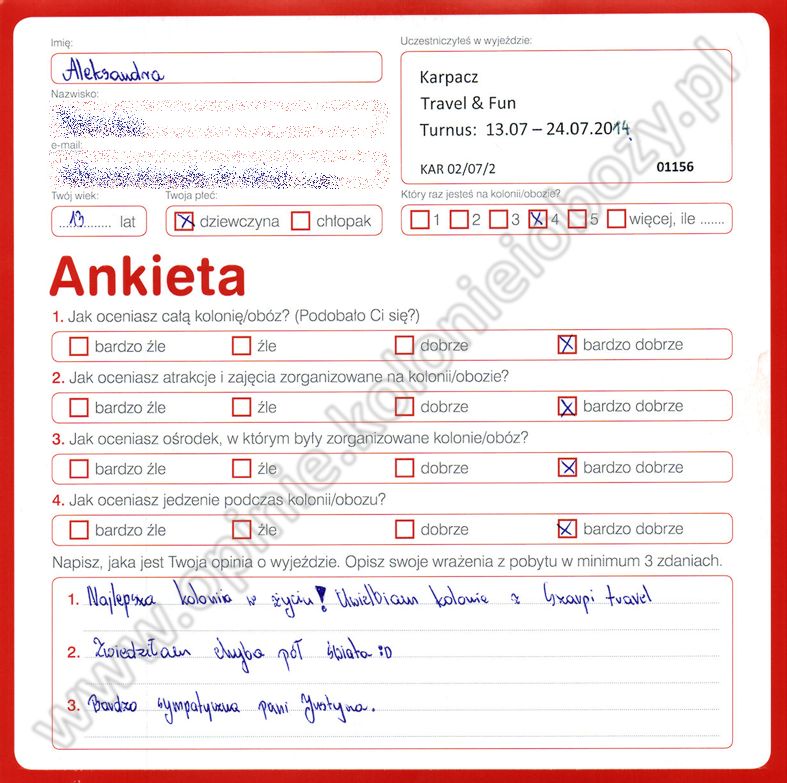 Imię:
Aleksandra
Nazwisko:
e-mail:
Twój wiek:
13 lat
Twoja płeć:
dziewczyna chłopak
Uczestniczyłeś w wyjeździe:
Karpacz
Travel & Fun
Turnus: 13.07 – 24.07.2014
KAR 02/07/2 01156
Który raz jesteś na kolonii/obozie?
1 2 3 4 5 więcej, ile .......
Ankieta
1. Jak oceniasz całą kolonię/obóz? (Podobało Ci się?)
bardzo źle źle dobrze bardzo dobrze
2. Jak oceniasz atrakcje i zajęcia zorganizowane na kolonii/obozie?
bardzo źle źle dobrze bardzo dobrze
3. Jak oceniasz ośrodek, w którym były zorganizowane kolonie/obóz?
bardzo źle źle dobrze bardzo dobrze
4. Jak oceniasz jedzenie podczas kolonii/obozu?
bardzo źle źle dobrze bardzo dobrze
Napisz, jaka jest Twoja opinia o wyjeździe. Opisz swoje wrażenia z pobytu w minimum 3 zdaniach.
1. Najlepsza kolonia w życiu! Uwielbiam kolonie z travel
2. Zwiedziłam chyba pół świata :D
3. Bardzo sympatyczna pani Justyna.
www.opinie.kolonieiobozy.pl